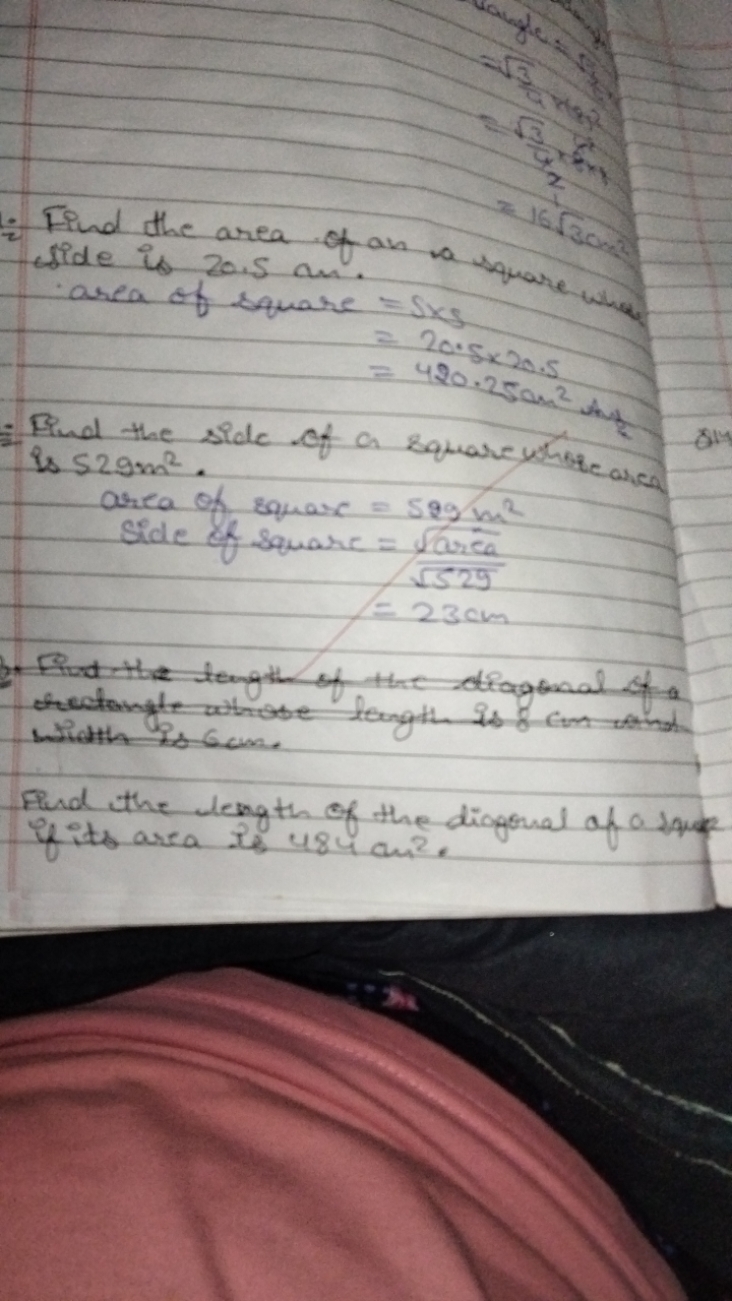 = √3/4 ×
= √3/4 × 8 ×
2
= 16√3 cm²
Find the area of an a square whose
side is 20.5 cm.
area of square = S×S
= 20.5×20.5
= 420.25cm² Ans
Find the side of a square whose area
is 529m².
area of square = 529 m²
Side of square = √area
√529
= 23cm
Find the length of the diagonal of a
rectangle whose length is 8 cm and
width is 6cm.
Find the length of the diagonal of a square
if its area is 484 cm².